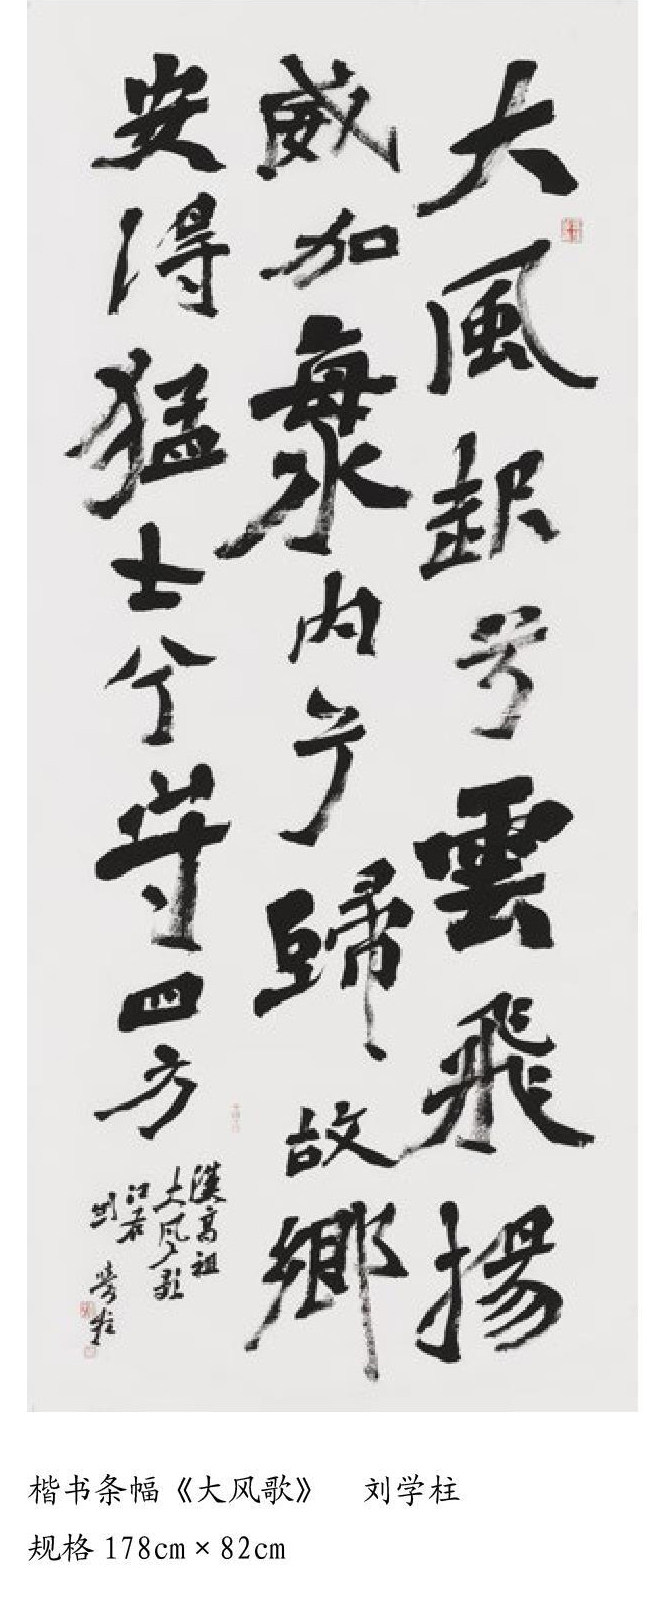 大風起兮雲飛揚
威加海内兮歸故鄉
安得猛士兮守四方
漢高祖
大风歌
刘學柱
楷书条幅《大风歌》 刘学柱
规格 178cm × 82cm